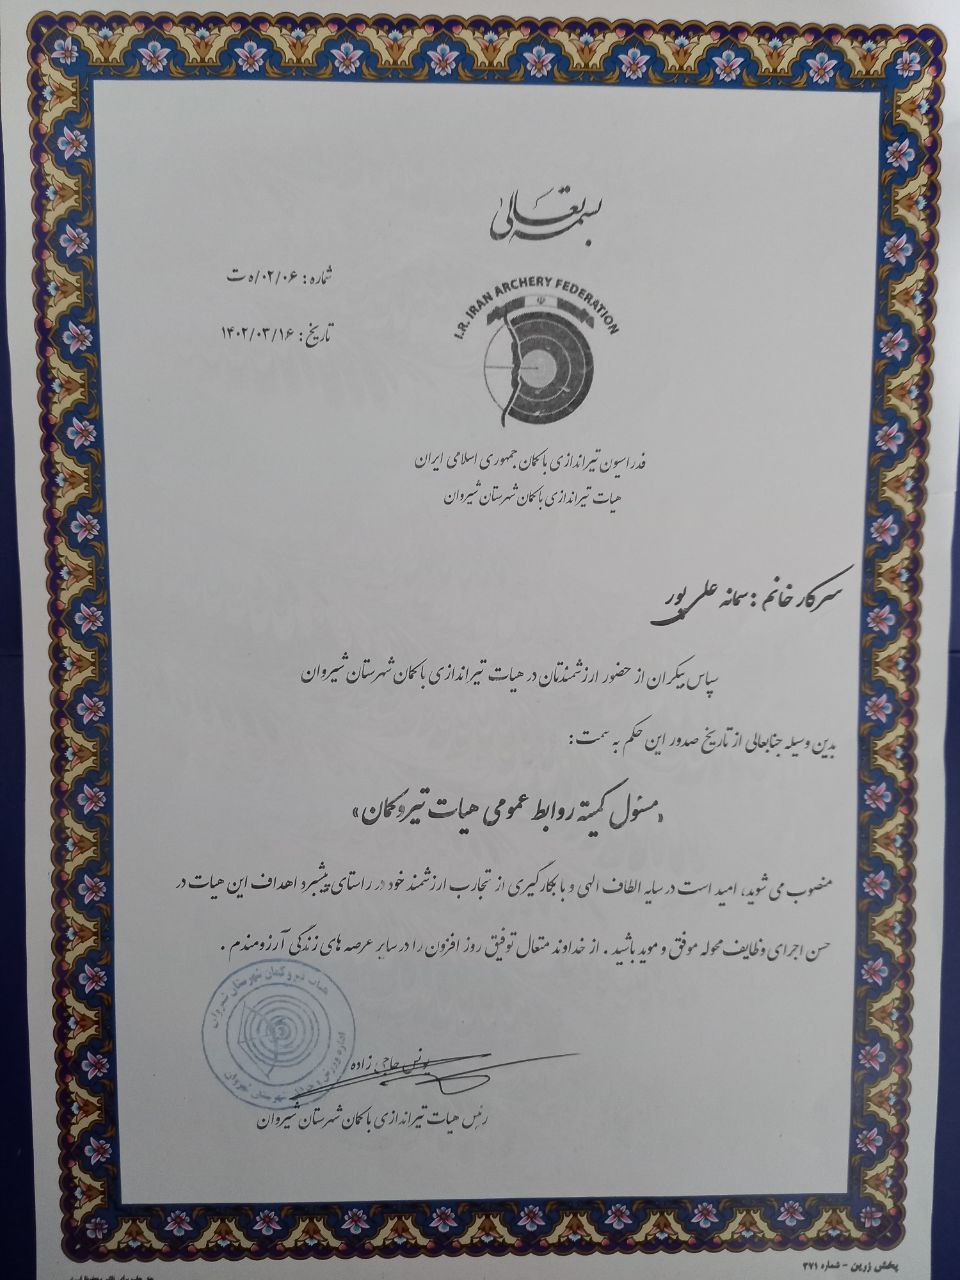 بسمه تعالی
شماره : ۰۲/۰۶/ه ت
تاریخ : ۱۴۰۲/۰۳/۱۶
I.R. IRAN ARCHERY FEDERATION
فدراسیون تیراندازی با کمان جمهوری اسلامی ایران
هیات تیراندازی با کمان شهرستان شیروان
سرکار خانم : سمانه علی پور
سپاس بیکران از حضور ارزشمندتان در هیات تیراندازی با کمان شهرستان شیروان
بدین وسیله جنابعالی از تاریخ صدور این حکم به سمت :
«مسئول کمیته روابط عمومی هیات تیروکمان»
منصوب می شوید، امید است در سایه الطاف الهی و با بکارگیری از تجارب ارزشمند خود در راستای پیشبرد اهداف این هیات در
حسن اجرای وظایف محوله موفق و موید باشید . از خداوند متعال توفیق روز افزون را در سایر عرصه های زندگی آرزومندم .
هیات تیر و کمان شهرستان شیروان
اداره ورزش و جوانان شهرستان شیروان
یونس حاجی زاده
رئیس هیات تیراندازی با کمان شهرستان شیروان
پخش زرین - شماره ۳۷۱